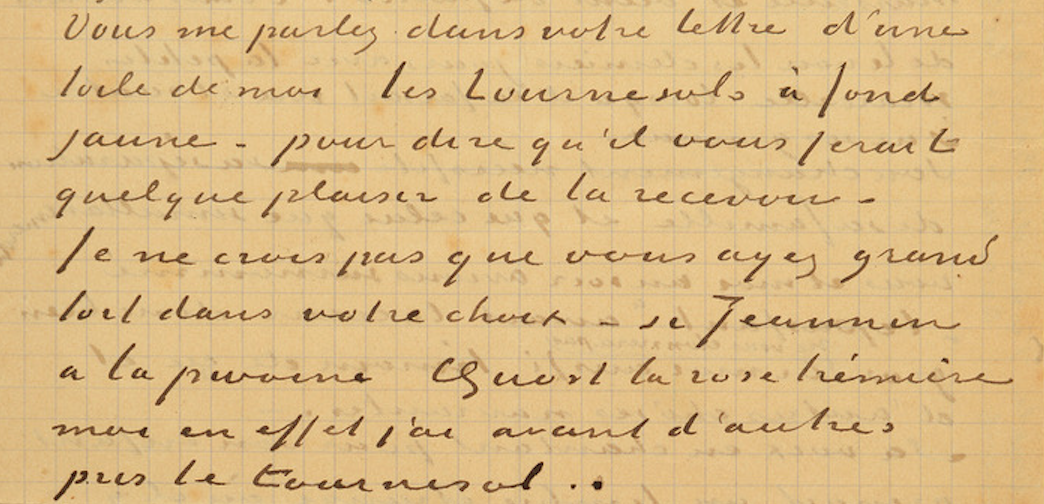 Vous me parlez dans votre lettre d'une
toile de moi les tournesols à fond
jaune - pour dire qu'il vous ferait
quelque plaisir de la recevoir -
Je ne crois pas que vous ayez grand
tort dans votre choix - si Jeannin
a la pivoine Quost la rose trémière
moi en effet j'ai avant d'autres
pris le tournesol . .